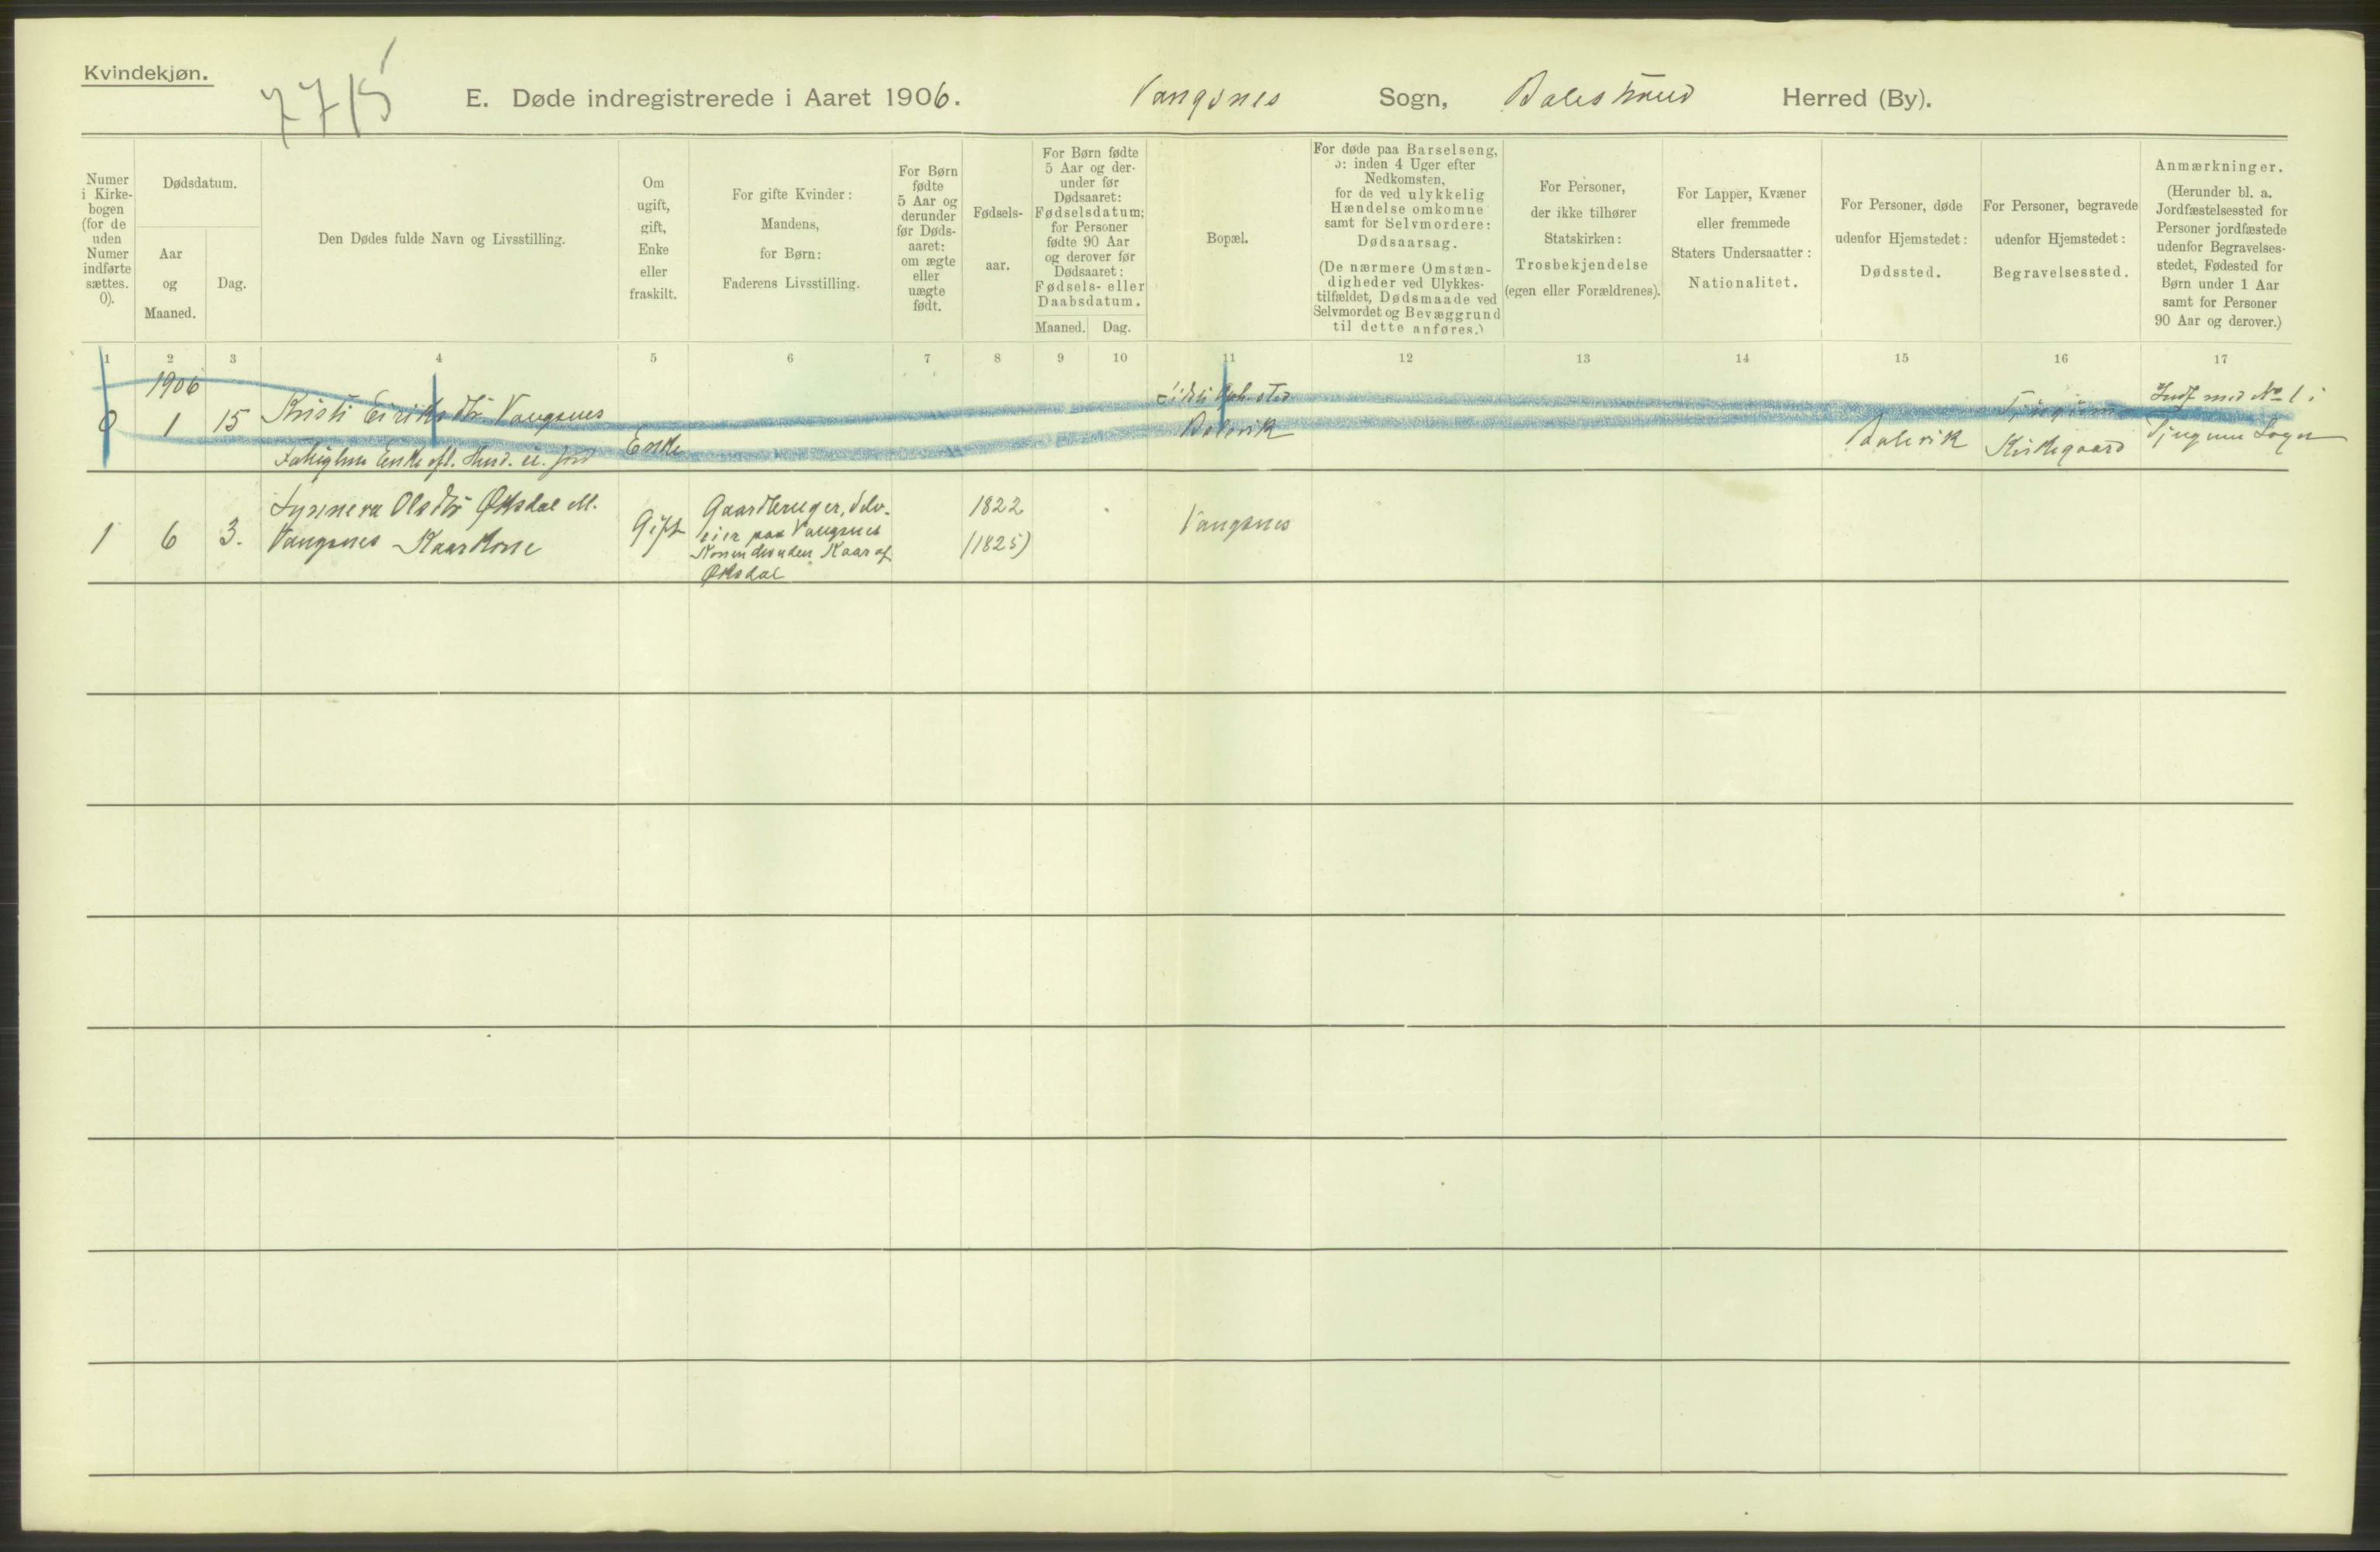 Kvindekjøn.
7715
E. Døde indregistrerede i Aaret 1906. Vangsnes Sogn, Balestrand Herred (By).
Numer
i Kirke-
bogen
(for de
uden
Numer
indførte
sættes.
0).
Dødsdatum.
Aar
og
Maaned.
Dag.
Den Dødes fulde Navn og Livsstilling.
Om
ugift,
gift,
Enke
eller
fraskilt.
For gifte Kvinder:
Mandens,
for Børn:
Faderens Livsstilling.
For Børn
fødte
5 Aar og
derunder
før Døds-
aaret:
om ægte
eller
uægte
født.
Fødsels-
aar.
For Børn fødte
5 Aar og der-
under før
Dødsaaret:
Fødselsdatum;
for Personer
fødte 90 Aar
og derover før
Dødsaaret:
Fødsels- eller
Daabsdatum.
Maaned. Dag.
Bopæl.
For døde paa Barselseng,
ɔ: inden 4 Uger efter
Nedkomsten,
for de ved ulykkelig
Hændelse omkomne
samt for Selvmordere:
Dødsaarsag.
(De nærmere Omstæn-
digheder ved Ulykkes-
tilfældet, Dødsmaade ved
Selvmordet og Bevæggrund
til dette anføres.)
For Personer,
der ikke tilhører
Statskirken:
Trosbekjendelse
(egen eller Forældrenes).
For Lapper, Kvæner
eller fremmede
Staters Undersaatter:
Nationalitet.
For Personer, døde
udenfor Hjemstedet:
Dødssted.
For Personer, begravede
udenfor Hjemstedet:
Begravelsessted.
Anmærkninger.
(Herunder bl. a.
Jordfæstelsessted for
Personer jordfæstede
udenfor Begravelses-
stedet, Fødested for
Børn under 1 Aar
samt for Personer
90 Aar og derover.)
1 2 3 4 5 6 7 8 9 10 11 12 13 14 15 16 17
1906
0 1 15
Kristi Eiriksdtr Vangsnes
Enke
Balevik
Balevik
Tjugum
Kirkegaard
Indf med No 1 i
Tjugum Sogn
1 6 3.
Synneva Olsdtr Øksdal M.
Vangsnes Kaarkone
Gift
Gaardbruger, Selv-
eier paa Vangsnes
Konen desuden Kaar af
Øksdal
1822
(1825)
Vangsnes